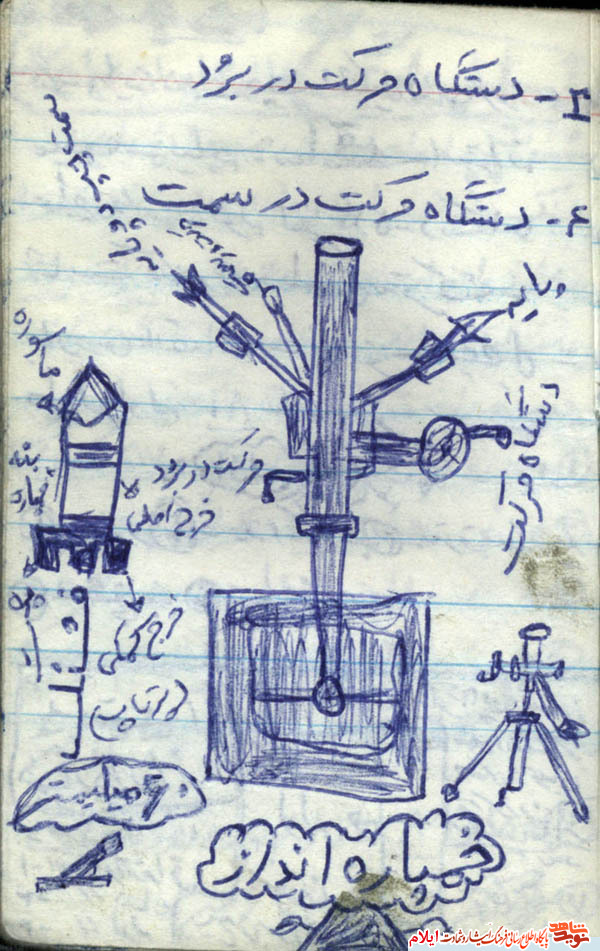 ۳- دستگاه حرکت در برد
۴- دستگاه حرکت در سمت
سمت
پایه
دستگاه حرکت
ماسوره
بدنه
حرکت در برد
خرج اصلی
خرج کمکی
پرتاب
۶۰ میلیمتر
خمپاره انداز
نوید شاهد
پایگاه اطلاع رسانی فرهنگ ایثار و شهادت ایلام